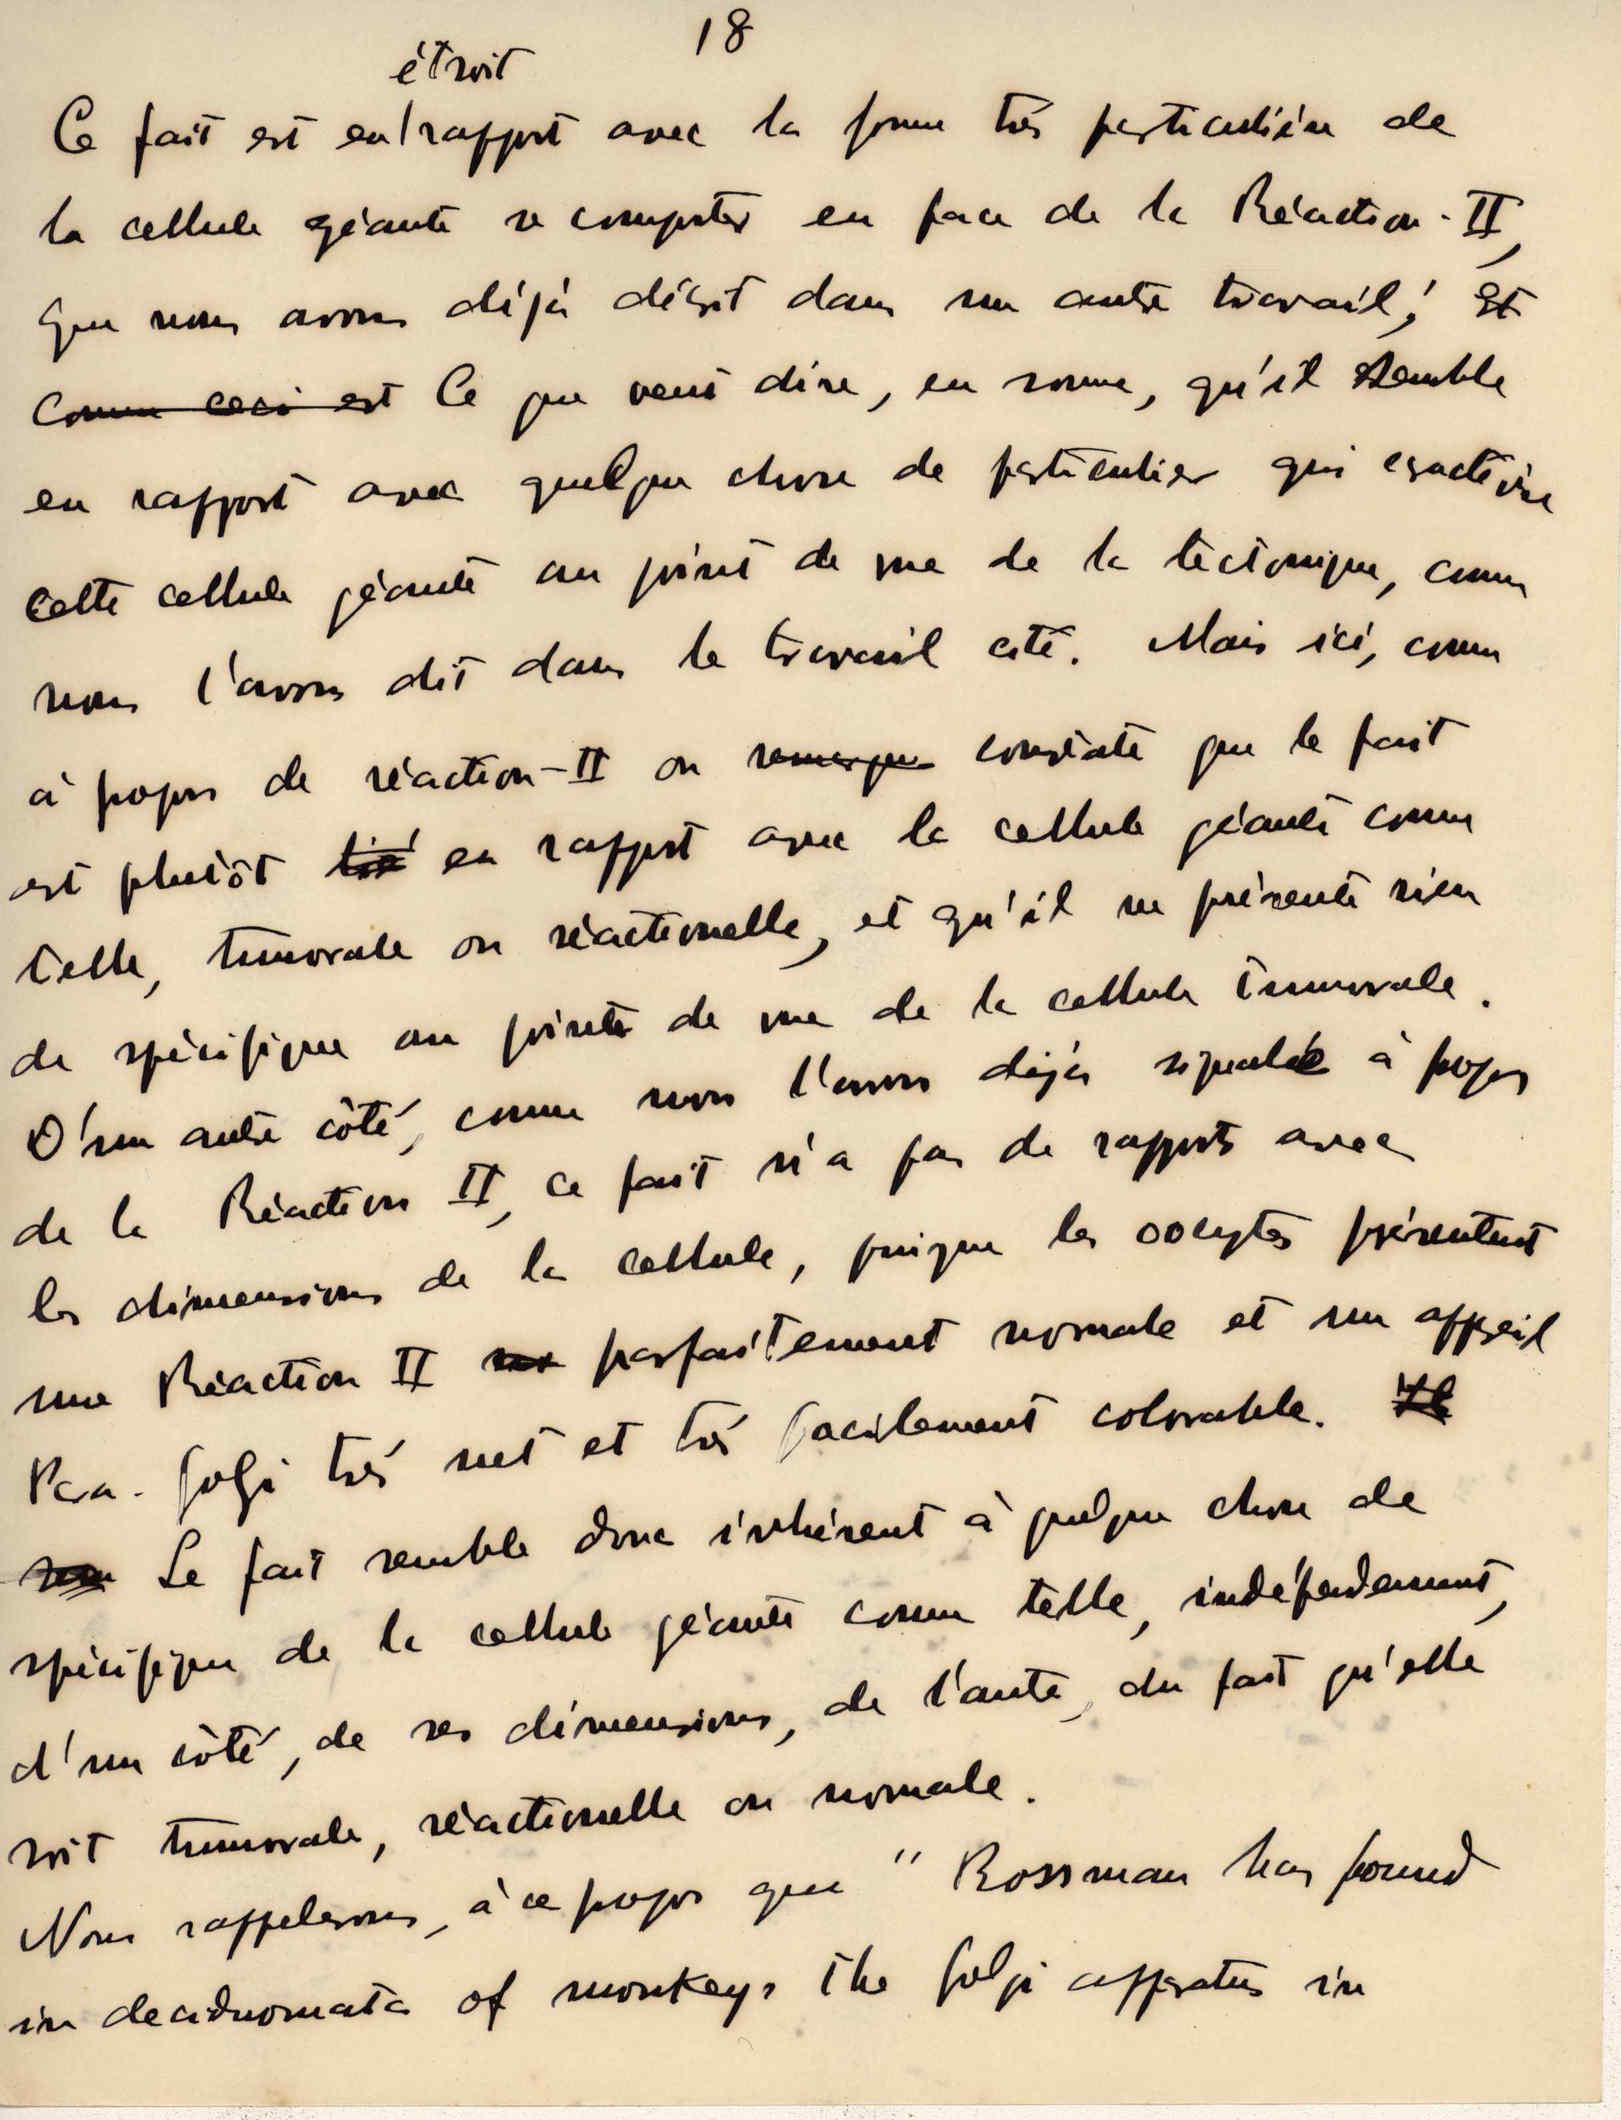 18
étroit
Ce fait est en rapport avec la forme très particulière de
la cellule géante se comporter en face de la Réaction-II,
que nous avons déjà décrit dans un autre travail; Et
Comme ceci est Ce que veut dire, en somme, qu'il semble
en rapport avec quelque chose de particulier qui caractérise
cette cellule géante au point de vue de la tectonique, comme
nous l'avons dit dans le travail cité. Mais ici, comme
à propos de réaction-II on remarque constate que le fait
est plutôt lié en rapport avec la cellule géante comme
telle, tumorale ou réactionelle, et qu'il ne présente rien
de spécifique au point de vue de la cellule tumorale.
D'un autre côté, comme nous l'avons déjà signalé à propos
de la Réaction II, ce fait n'a pas de rapports avec
les dimensions de la cellule, puisque les oocytes présentent
une Réaction II parfaitement normale et un appareil
Para-Golgi très net et très facilement colorable. Il
Le fait semble donc inhérent à quelque chose de
spécifique de la cellule géante comme telle, indépendemment,
d'un côté, de ses dimensions, de l'autre, du fait qu'elle
soit tumorale, réactionelle ou normale.
Nous rappelerons, à ce propos que "Rossman has found
in deciduomata of monkeys the Golgi apparatus in